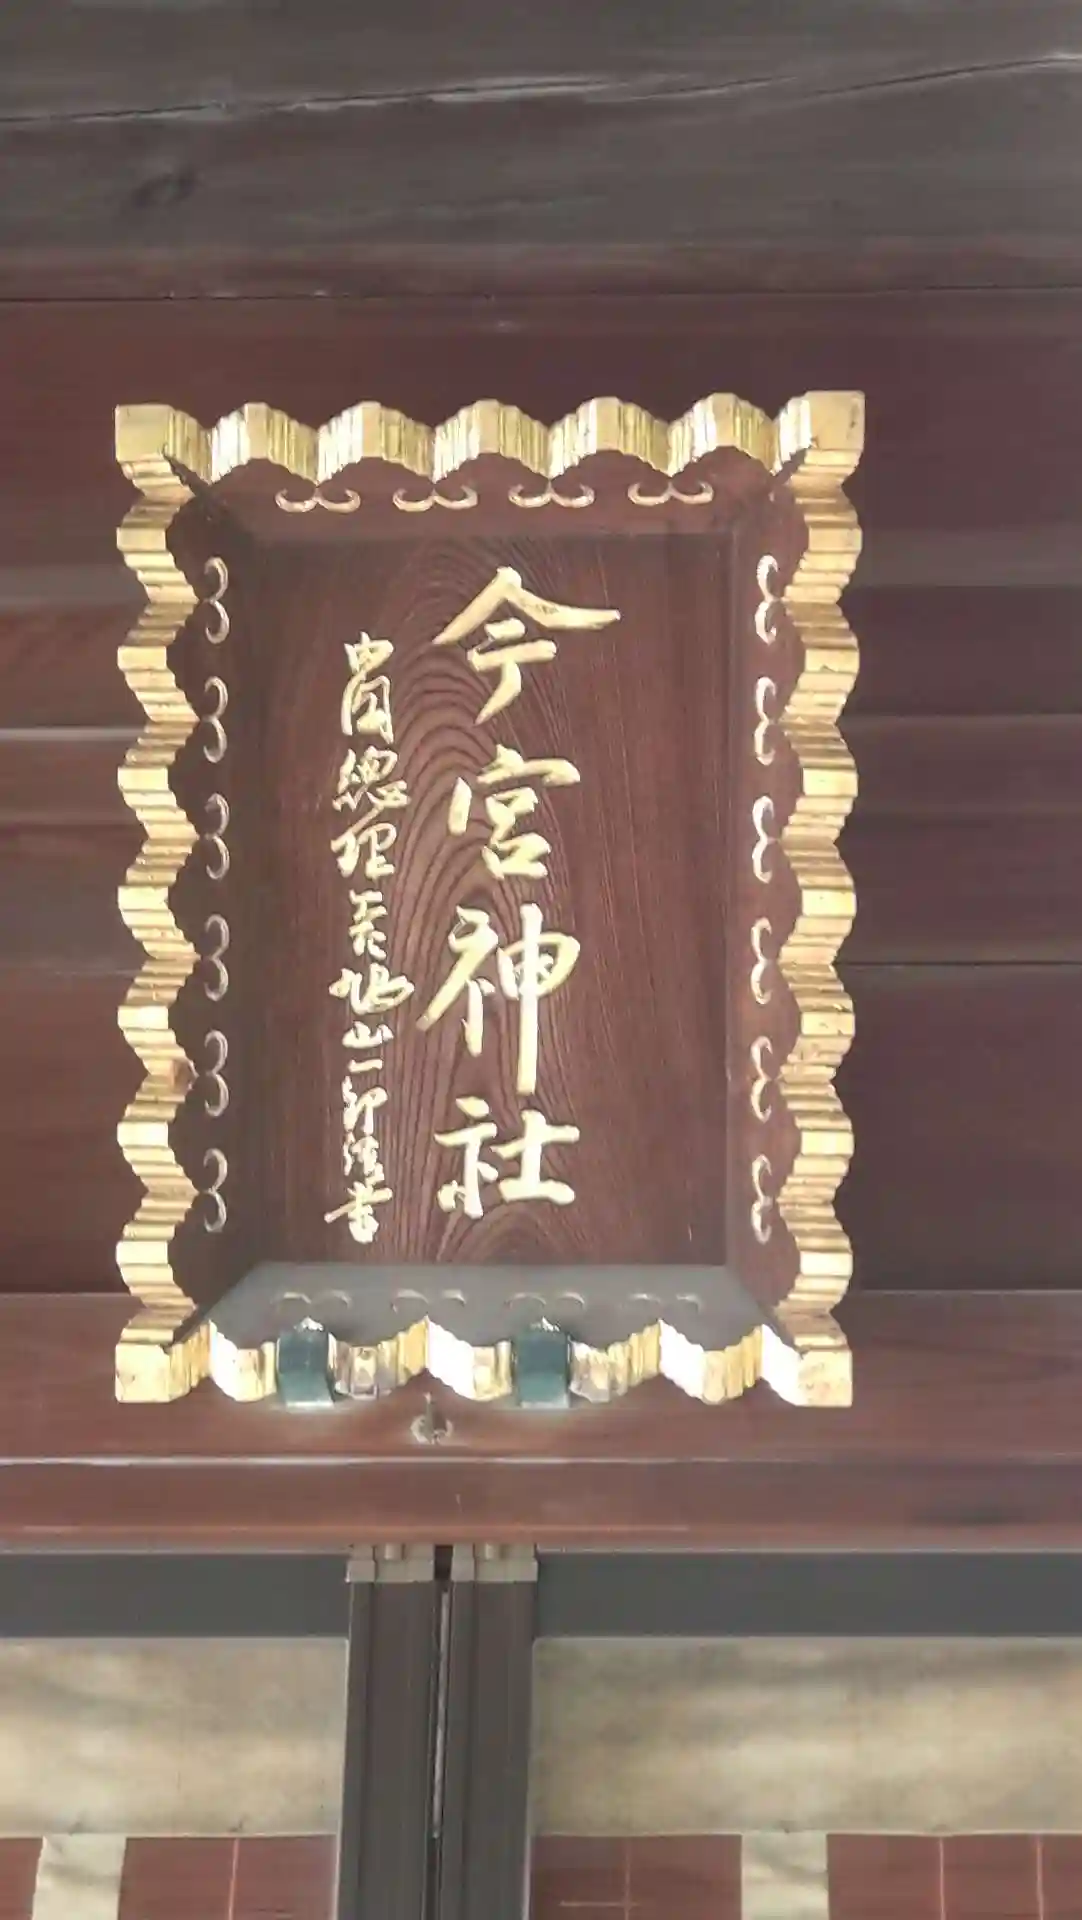 今宮神社
内閣總理大臣鳩山一郎謹書